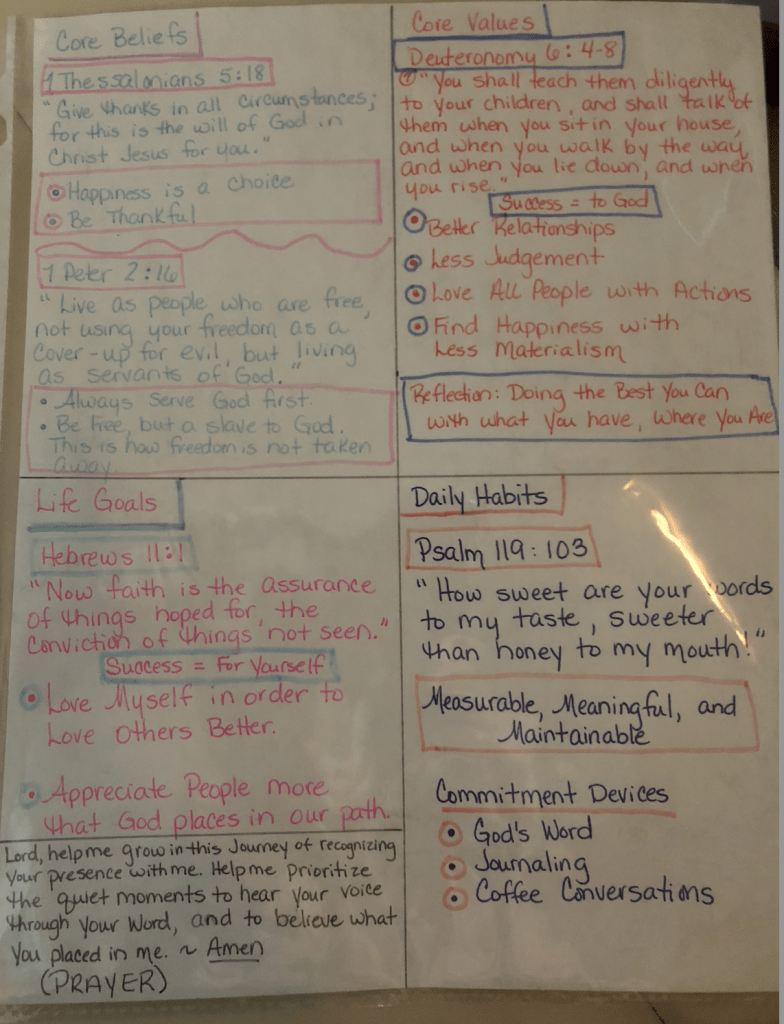 Core Beliefs
1 Thessalonians 5:18
"Give thanks in all circumstances;
for this is the will of God in
Christ Jesus for you."
Happiness is a choice
Be Thankful
1 Peter 2:16
"Live as people who are free,
not using your freedom as a
cover-up for evil, but living
as servants of God."
• Always serve God first.
• Be Free, but a slave to God.
This is how freedom is not taken
away.
Core Values
Deuteronomy 6:4-8
"You shall teach them diligently
to your children, and shall talk of
them when you sit in your house,
and when you walk by the way,
and when you lie down, and when
you rise."
Success = to God
Better Relationships
Less Judgement
Love All People with Actions
Find Happiness with
Less Materialism
Reflection: Doing the Best You Can
with what You have, Where You Are
Life Goals
Hebrews 11:1
"Now faith is the assurance
of things hoped for, the
conviction of things not seen."
Success = For Yourself
Love Myself in order to
Love Others Better.
Appreciate People more
that God places in our path.
Lord, help me grow in this Journey of recognizing
Your presence with me. Help me Prioritize
the quiet moments to hear Your voice
through Your Word, and to believe what
You placed in me. ~ Amen
(PRAYER)
Daily Habits
Psalm 119:103
"How sweet are your words
to my taste, sweeter
than honey to my mouth!"
Measurable, Meaningful, and
Maintainable
Commitment Devices
God's Word
Journaling
Coffee Conversations